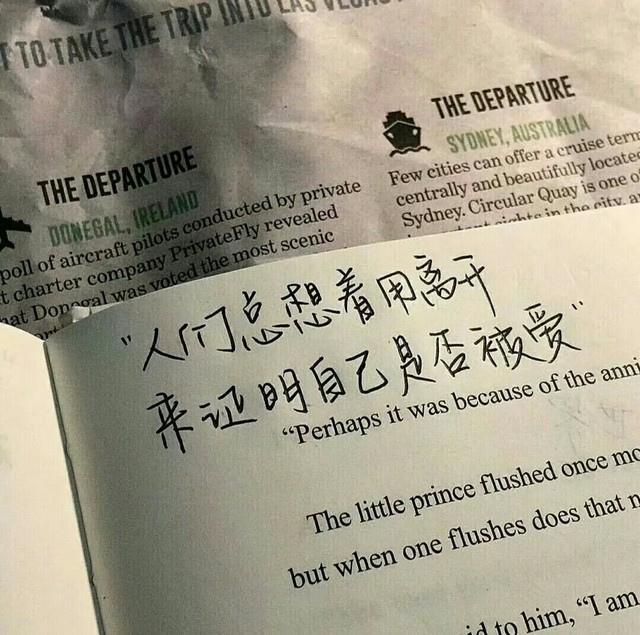 TO TAKE THE TRIP INTO LAS VEGAS
THE DEPARTURE
SYDNEY, AUSTRALIA
Few cities can offer a cruise
centrally and beautifully
Sydney. Circular Quay is one of
in the city,
THE DEPARTURE
DONEGAL, IRELAND
poll of aircraft pilots conducted by private
charter company PrivateFly revealed
Donegal was voted the most scenic
"人们总想着用离开
来证明自己是否被爱"
“Perhaps it was because of the
The little prince flushed once
but when one flushes does that
to him, “I am